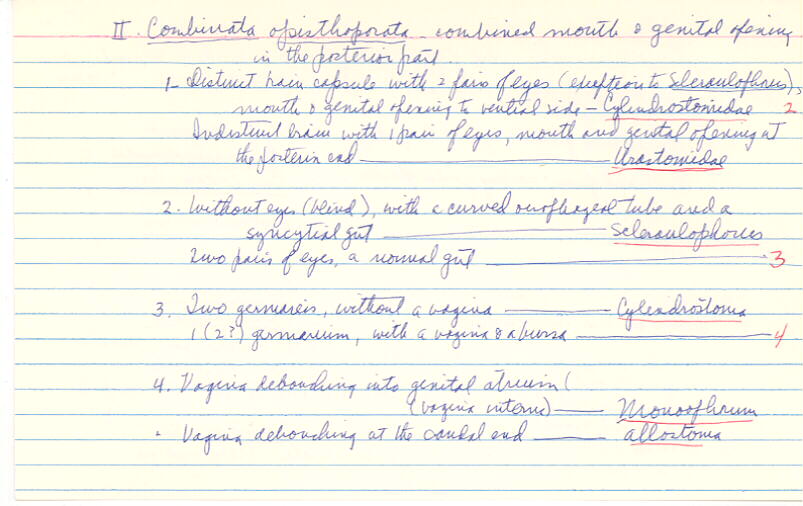 II. Combinata opisthoporata - combined mouth & genital opening
in the posterior part.
1- Distinct brain capsule with 2 pairs of eyes (exception to Scleraulophorus),
mouth & genital opening to ventral side - Cylindrostomidae 2
Indistinct brain with 1 pair of eyes, mouth and genital opening at
the posterior end — Urastomidae
2. Without eyes (blind), with a curved oesophageal tube and a
syncytial gut — Scleraulophorus
Two pairs of eyes, a normal gut — 3
3. Two germaria, without a vagina — Cylindrostoma
1 (2?) germarium, with a vagina & a bursa — 4
4. Vagina debouching into genital atrium (
(vagina interna) — Monoophorum
. Vagina debouching at the caudal end — allostoma